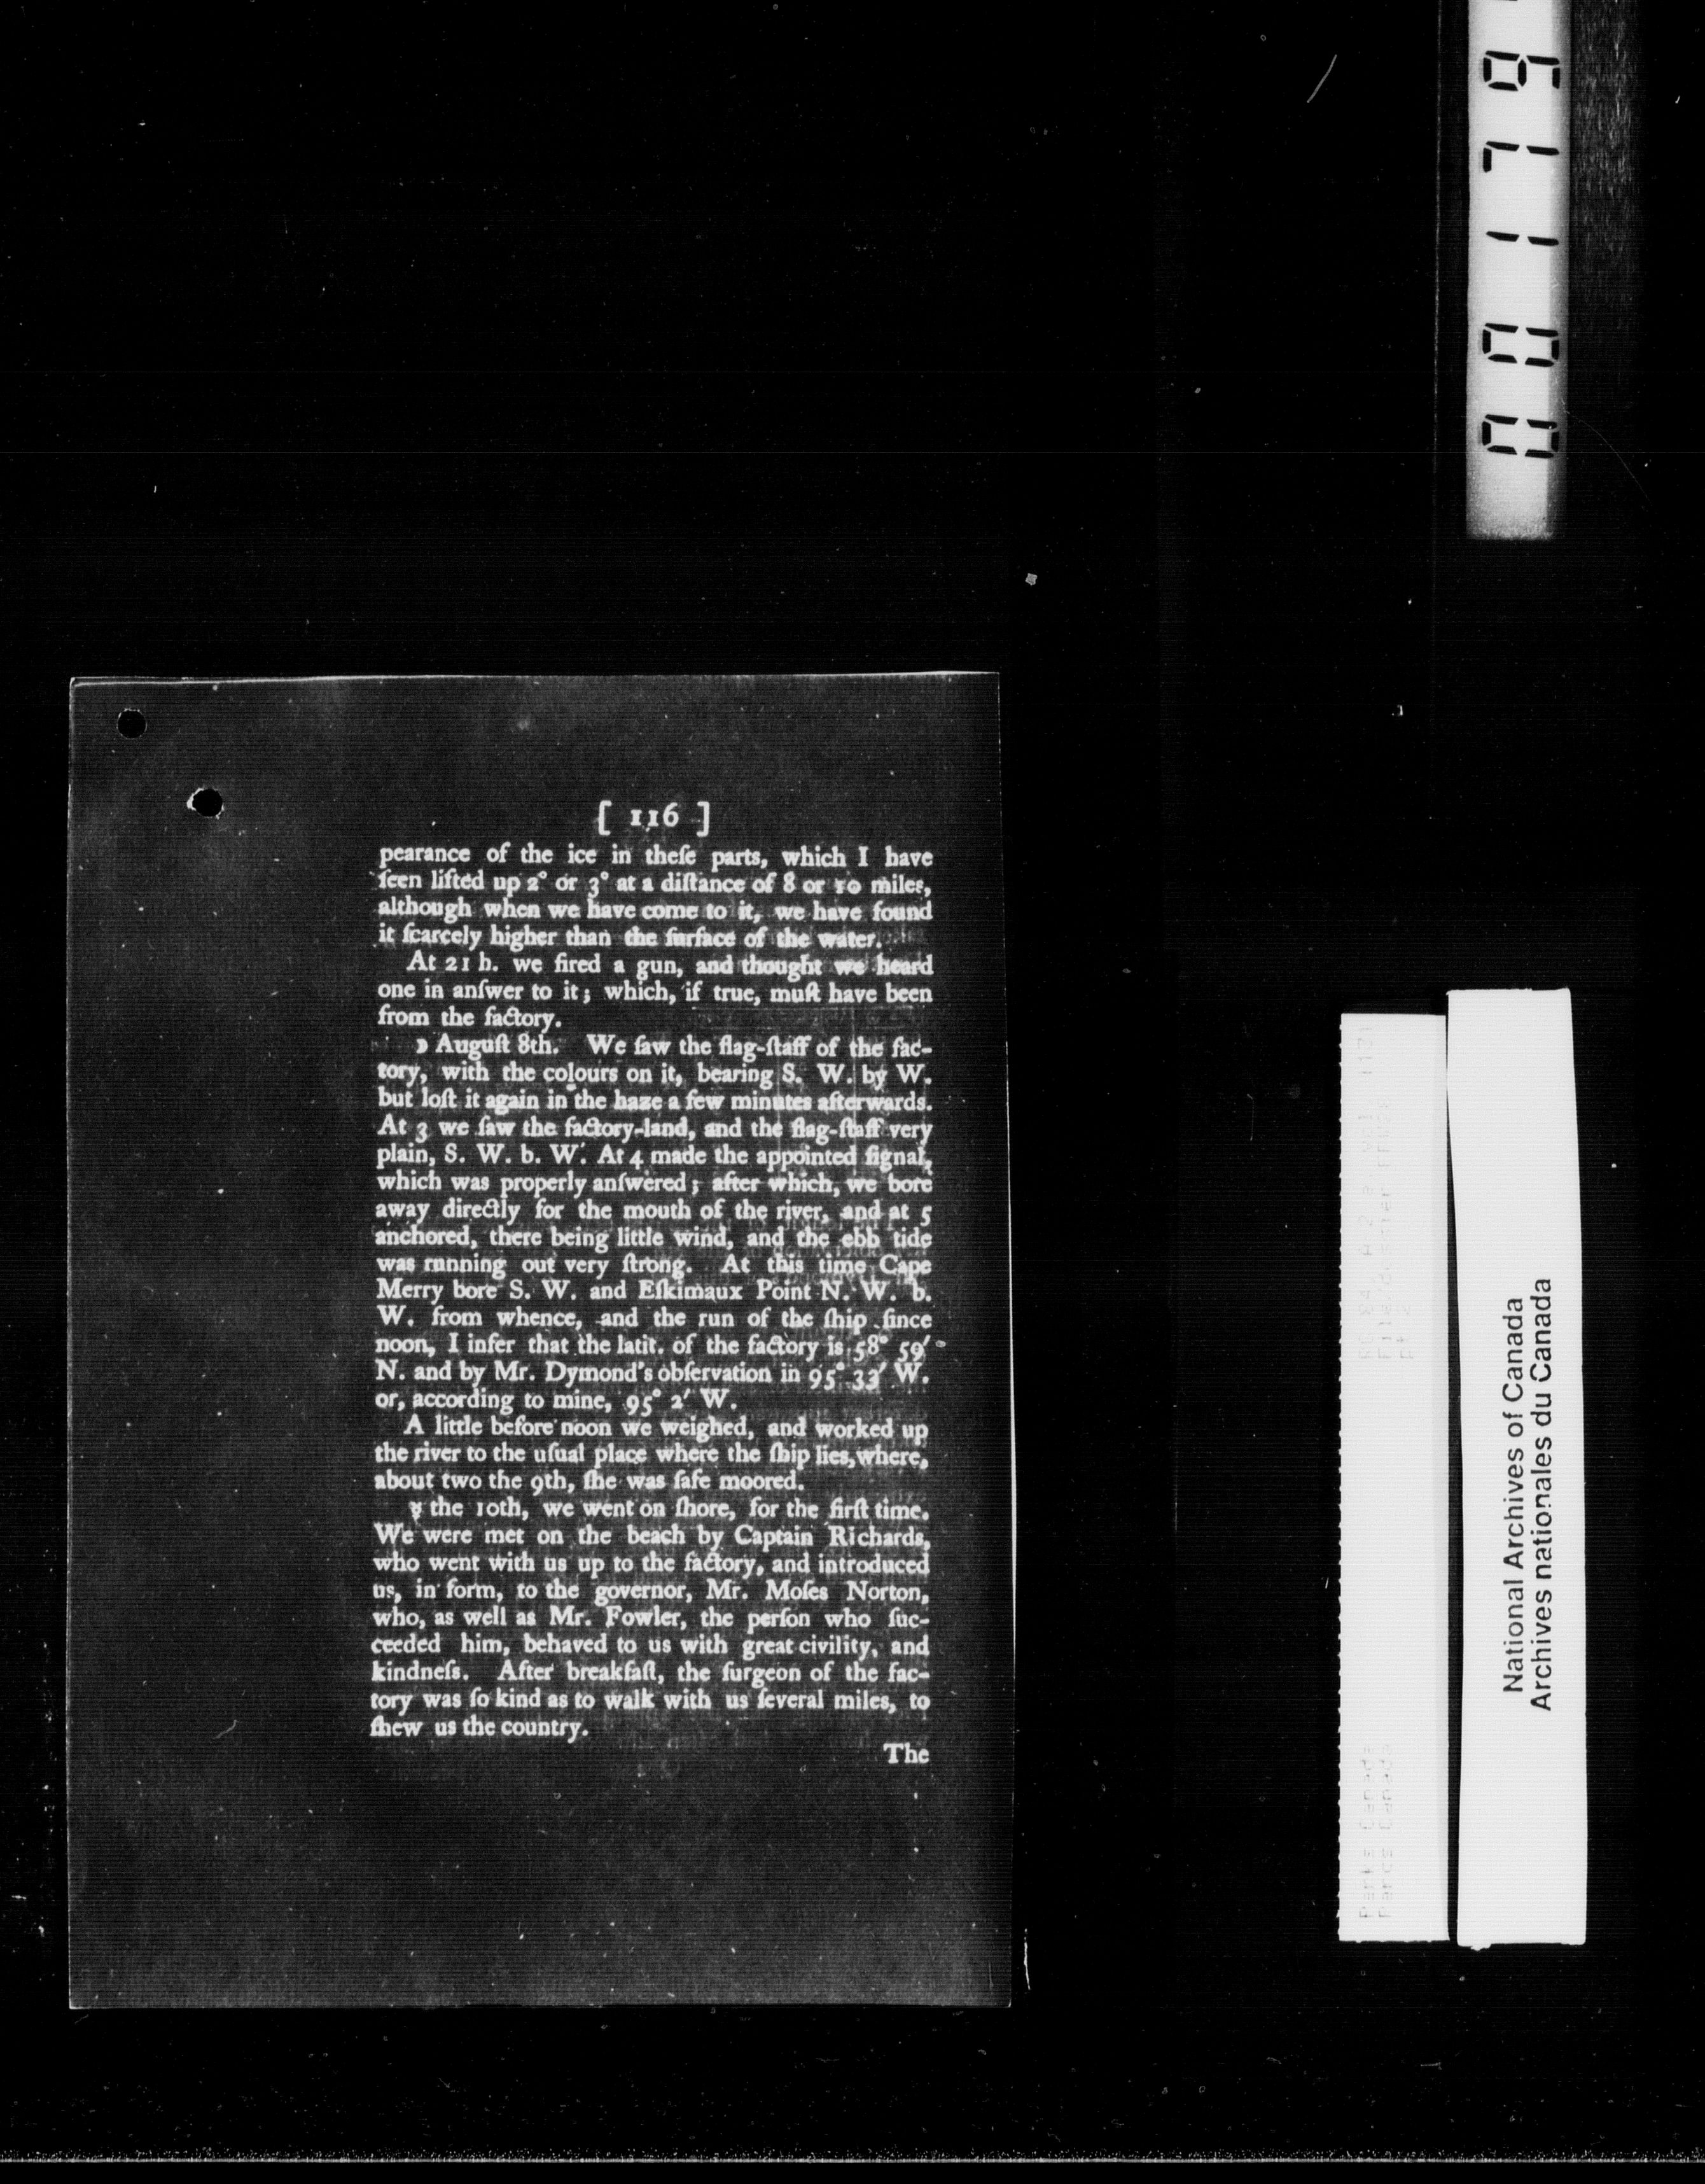 [ 116 ]
pearance of the ice in theſe parts, which I have
ſeen lifted up 2° or 3° at a diſtance of 8 or 10 miles,
although when we have come to it, we have found
it ſcarcely higher than the ſurface of the water.
At 21 h. we fired a gun, and thought we heard
one in anſwer to it; which, if true, muſt have been
from the factory.
☽ Auguſt 8th. We ſaw the flag-ſtaff of the fac-
tory, with the colours on it, bearing S. W. by W.
but loſt it again in the haze a few minutes afterwards.
At 3 we ſaw the factory-land, and the flag-ſtaff very
plain, S. W. b. W. At 4 made the appointed ſignal,
which was properly anſwered; after which, we bore
away directly for the mouth of the river, and at 5
anchored, there being little wind, and the ebb tide
was running out very ſtrong. At this time Cape
Merry bore S. W. and Eſkimaux Point N. W. b.
W. from whence, and the run of the ſhip ſince
noon, I infer that the latit. of the factory is 58° 59′
N. and by Mr. Dymond's obſervation in 95° 33′ W.
or, according to mine, 95° 2′ W.
A little before noon we weighed, and worked up
the river to the uſual place where the ſhip lies, where,
about two the 9th, ſhe was ſafe moored.
☿ the 10th, we went on ſhore, for the firſt time.
We were met on the beach by Captain Richards,
who went with us up to the factory, and introduced
us, in form, to the governor, Mr. Moſes Norton,
who, as well as Mr. Fowler, the perſon who ſuc-
ceeded him, behaved to us with great civility, and
kindneſs. After breakfaſt, the ſurgeon of the fac-
tory was ſo kind as to walk with us ſeveral miles, to
ſhew us the country.
The
National Archives of Canada
Archives nationales du Canada
Parks Canada
Parcs Canada